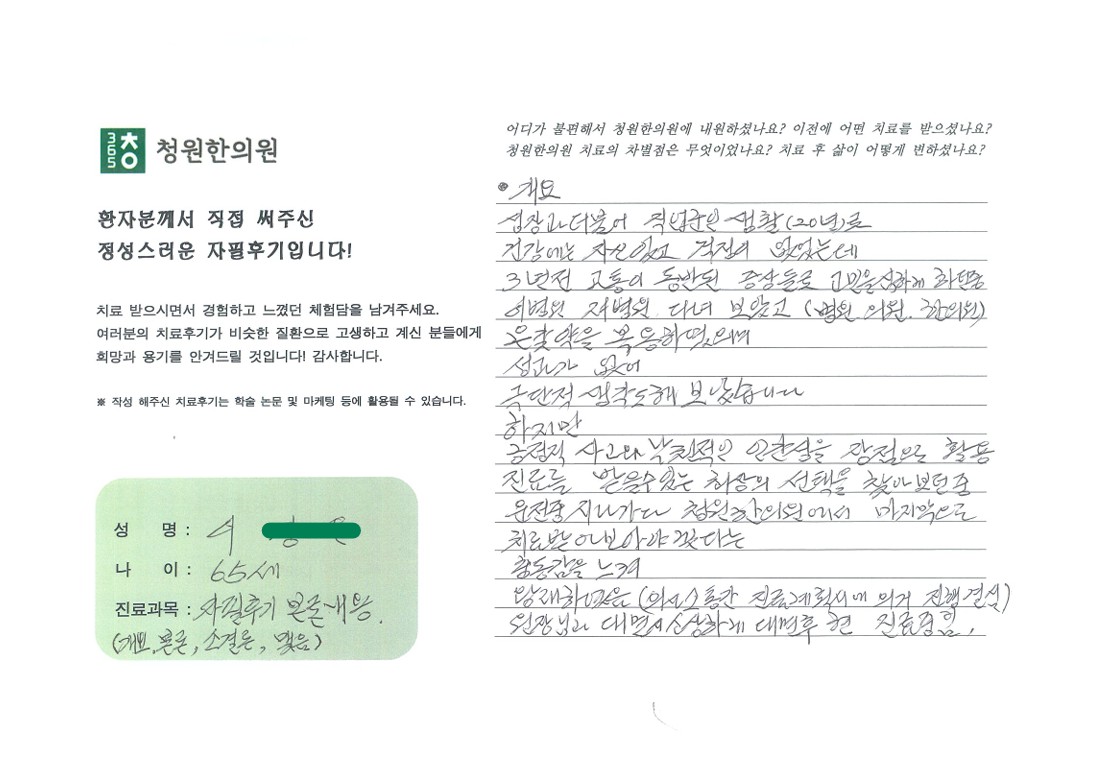 365 청
청원한의원
환자분께서 직접 써주신
정성스러운 자필후기입니다!
치료 받으시면서 경험하고 느꼈던 체험담을 남겨주세요.
여러분의 치료후기가 비슷한 질환으로 고생하고 계신 분들에게
희망과 용기를 안겨드릴 것입니다! 감사합니다.
※ 작성 해주신 치료후기는 학술 논문 및 마케팅 등에 활용될 수 있습니다.
성 명 :
나 이 : 65세
진료과목 : 자필후기 본론내용.
(개요, 본론, 소결론, 맺음)
어디가 불편해서 청원한의원에 내원하셨나요? 이전에 어떤 치료를 받으셨나요?
청원한의원 치료의 차별점은 무엇이었나요? 치료 후 삶이 어떻게 변하셨나요?
개요
성장과 더불어 직업군인 생활(20년)로
건강에는 자신있고 걱정이 없었는데
3년전 고통이 동반된 증상들로 고민을 심하게 하던중
이병원 저병원 다녀 보았고 (병원 의원. 한의원)
온갖 약을 복용하였으며
성과가 없어
극단적 생각도 해 보았습니다
하지만
긍정적 사고와 낙천적인 을 장점으로 활용
진료를 받을수있는 최상의 선택을 찾아보던중
운전중 지나가다 청원한의원에서 마지막으로
치료받아보아야 겠다는
충동감을 느껴
(의사소통간 진료계획서에 의거 진행결심)
원장님과 대면 상하게 대면후 현 진료중임.